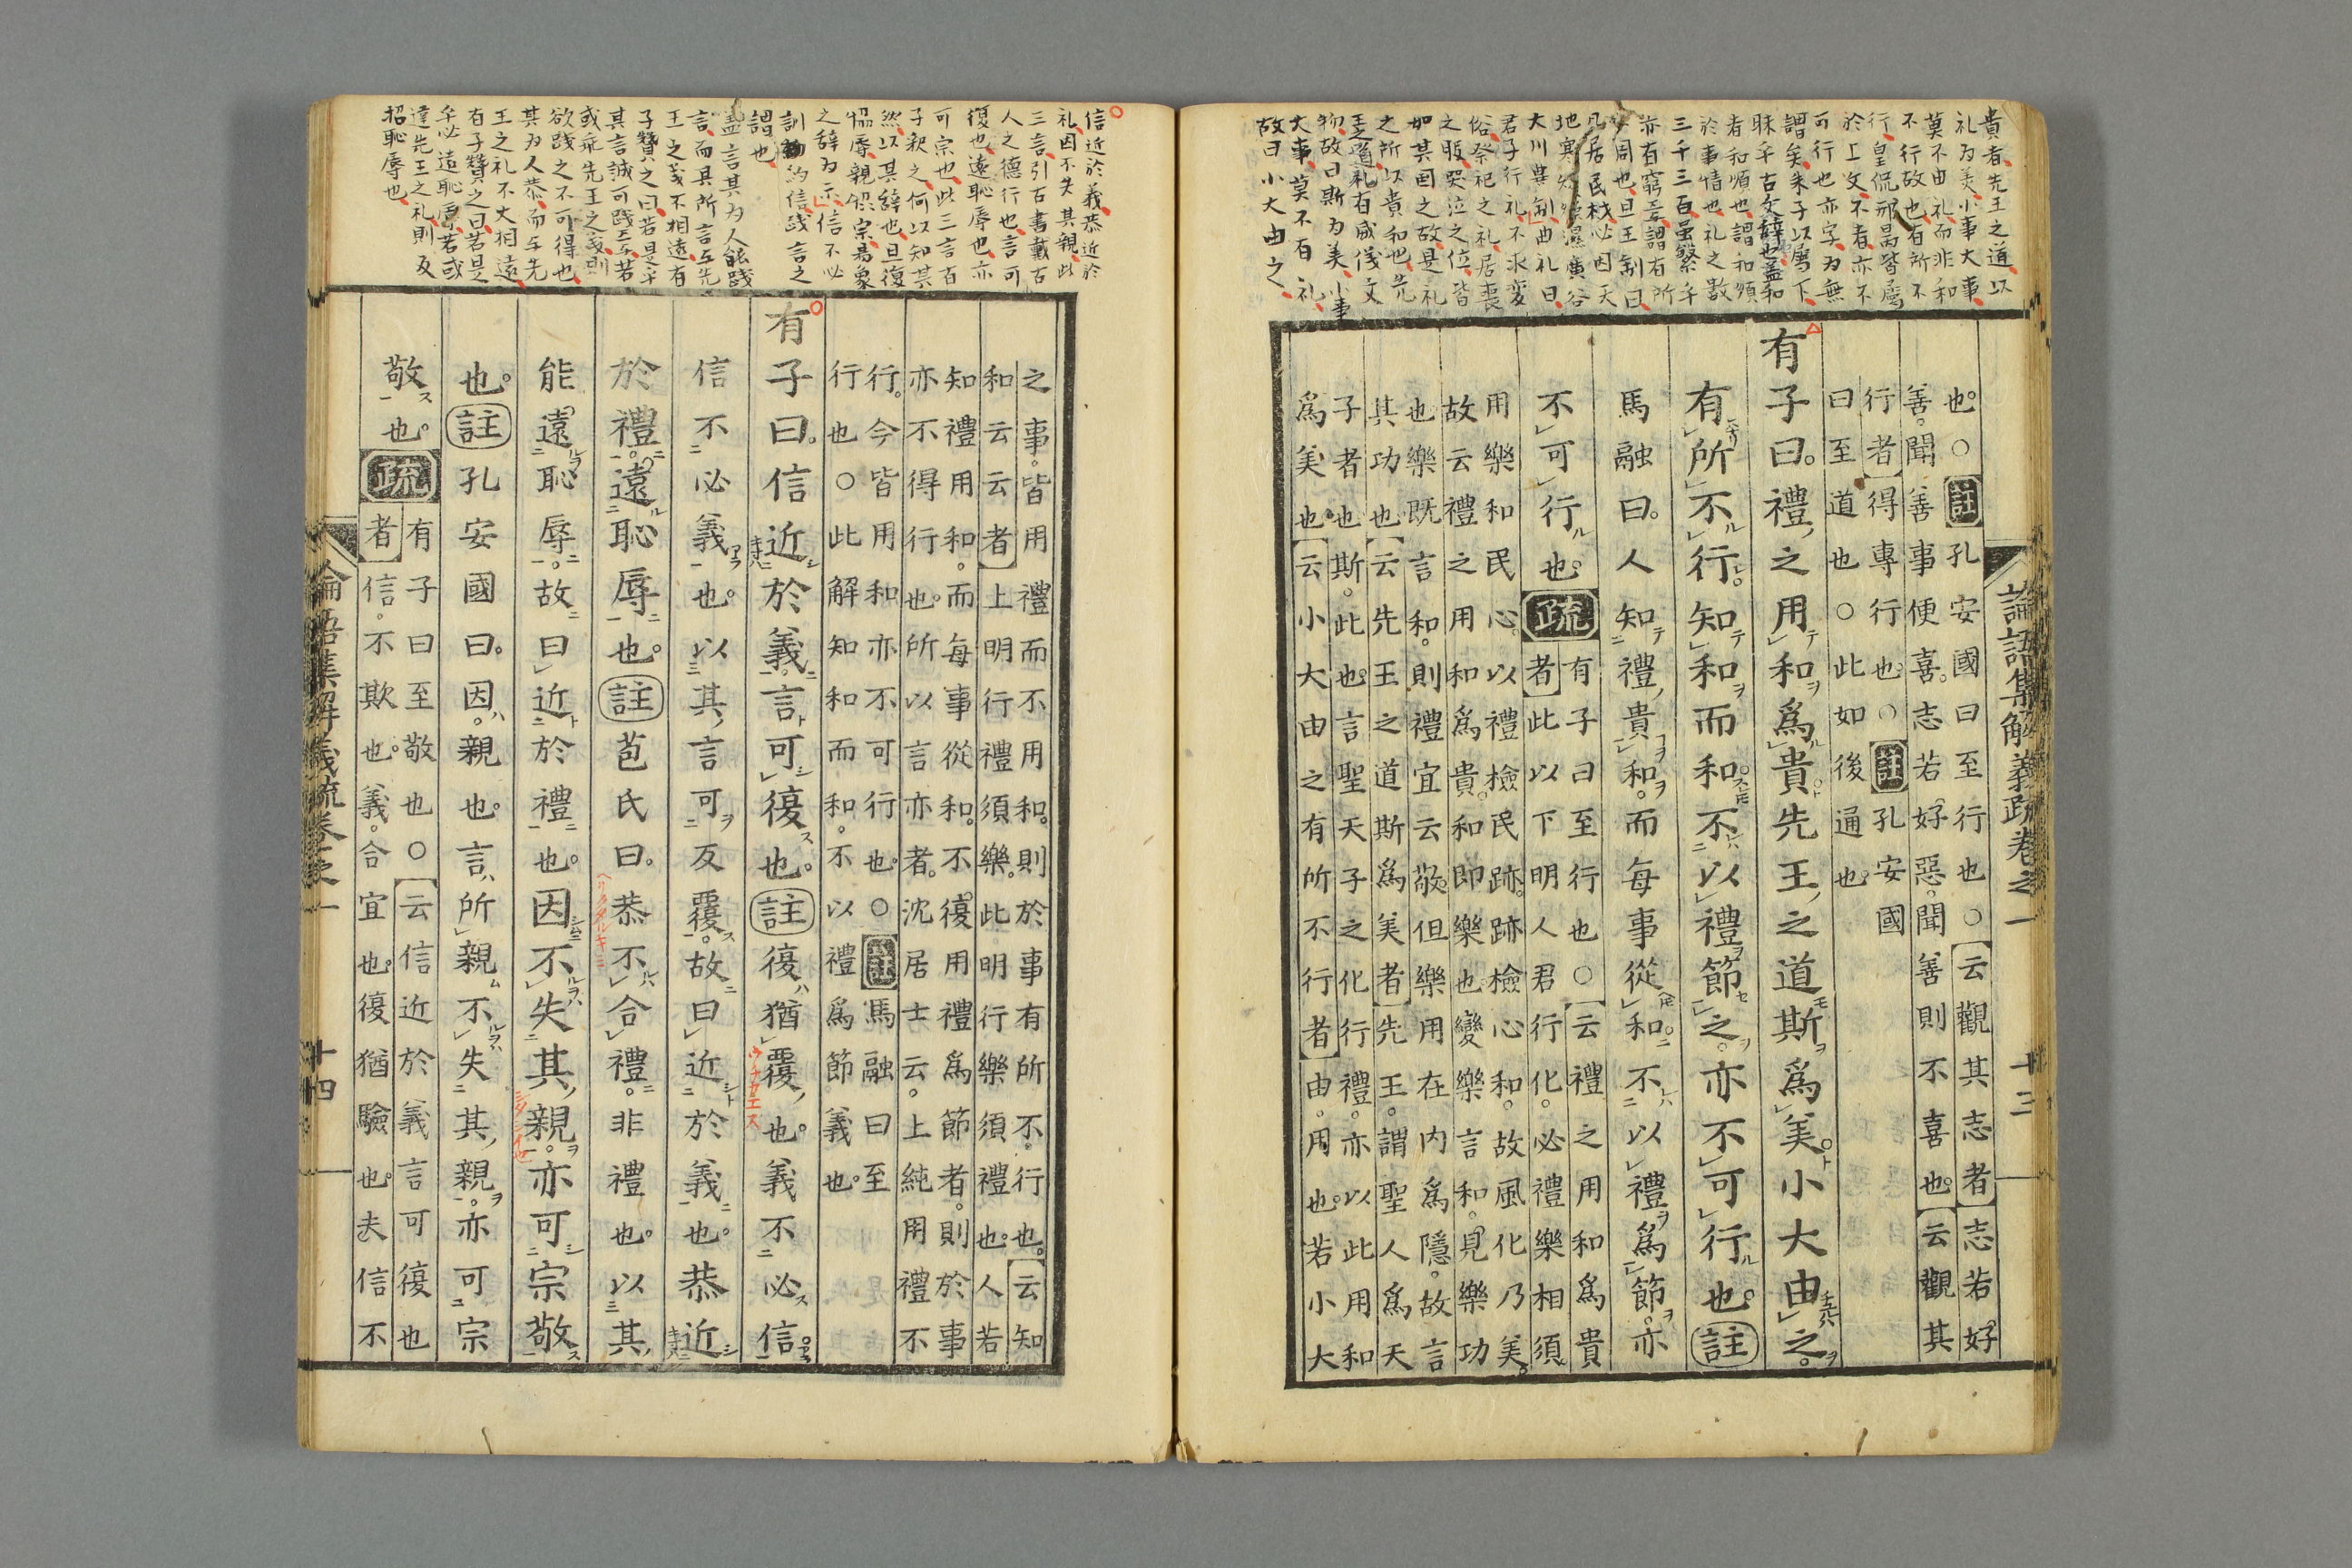 貴者先王之道以
礼為美小事大事
莫不由礼而非和
不行故也有所不
行皇侃邢昺皆屬
於上文不者亦不
可行也亦字為無
謂矣朱子以屬下
昧乎古文辞也蓋和
者和順也謂和順
於事情也礼之数
三千三百虽繁乎
亦有窮妄謂有所
周也且王制曰
凡居民材必因天
地寒煖燥濕廣谷
大川異制曲礼曰
君子行礼不求変
俗祭祀之礼居喪
之服哭泣之位皆
如其国之故是礼
之所以貴和也先
王之道礼有威儀文
物故曰斯为美小事
大事莫不有礼
故曰小大由之
論語集解義疏卷之一 十三
也。○註孔安國曰至行也○云觀其志者志若好
善。聞善事便喜。志若好惡。聞善則不喜也。云觀其
行者得專行也。○註孔安國
曰至道也○此如後通也。
有子曰。禮之用和爲貴先王之道斯爲美小大由之。
有所不行。知和而和不以禮節之。亦不可行也。註
馬融曰。人知禮貴和。而每事從和不以禮爲節。亦
不可行也。疏
有子曰至行也○云禮之用和爲貴
者此以下明人君行化。必禮樂相須。
用樂和民心。以禮檢民跡。跡檢心和。故風化乃美。
故云禮之用和爲貴。和即樂也。變樂言和。見樂功
也樂既言和。則禮宜云敬。但樂用在内爲隱。故言
其功也云先王之道斯爲美者先王。謂聖人爲天
子者也斯。此也。言聖天子之化行禮。亦以此用和
爲美也。云小大由之有所不行者由。用也。若小大
信近於義恭近於
礼因不失其親此
三言引古書載古
人之德行也言可
復也遠恥辱也亦
可宗也此三言百
子釈之何以知其
然以其辞也且復
協辱親叶宗為象
之辞為示信不必
訓約信践言之
謂也
蓋言其为人能践
言而其所言与先
王之義不相遠有
子贊之曰若是乎
其言誠可践与若
或乖先王之義則
欲践之不可得也
其为人恭而与先
王之礼不大相遠
有子贊之曰若是
乎必遠恥辱若或
違先王之礼則反
招恥辱也
之事。皆用禮而不用和。則於事有所不。行也。云知
和云云者上明行禮須樂。此明行樂須禮也。人若
知禮用和。而每事從和。不復用禮爲節者。則於事
亦不得行也。所以言亦者。沈居士云。上純用禮不
行。今皆用和亦不可行也。○註馬融曰至
行也○此解知和而和。不以禮爲節義也。
有子曰。信近於義。言可復也。註復猶覆也。義不必信
信不必義也。以其言可反覆。故曰近於義也。恭近
於禮。遠恥辱也。註苞氏曰。恭不合禮。非禮也。以其
能遠恥辱。故曰近於禮也。因不失其親。亦可宗敬
也。註孔安國曰。因。親也。言所親不失其親。亦可宗
敬也。疏
有子曰至敬也○云信近於義言可復也
者信。不欺也。義。合宜也。復猶驗也。夫信不
論語集解義疏卷之一 十四